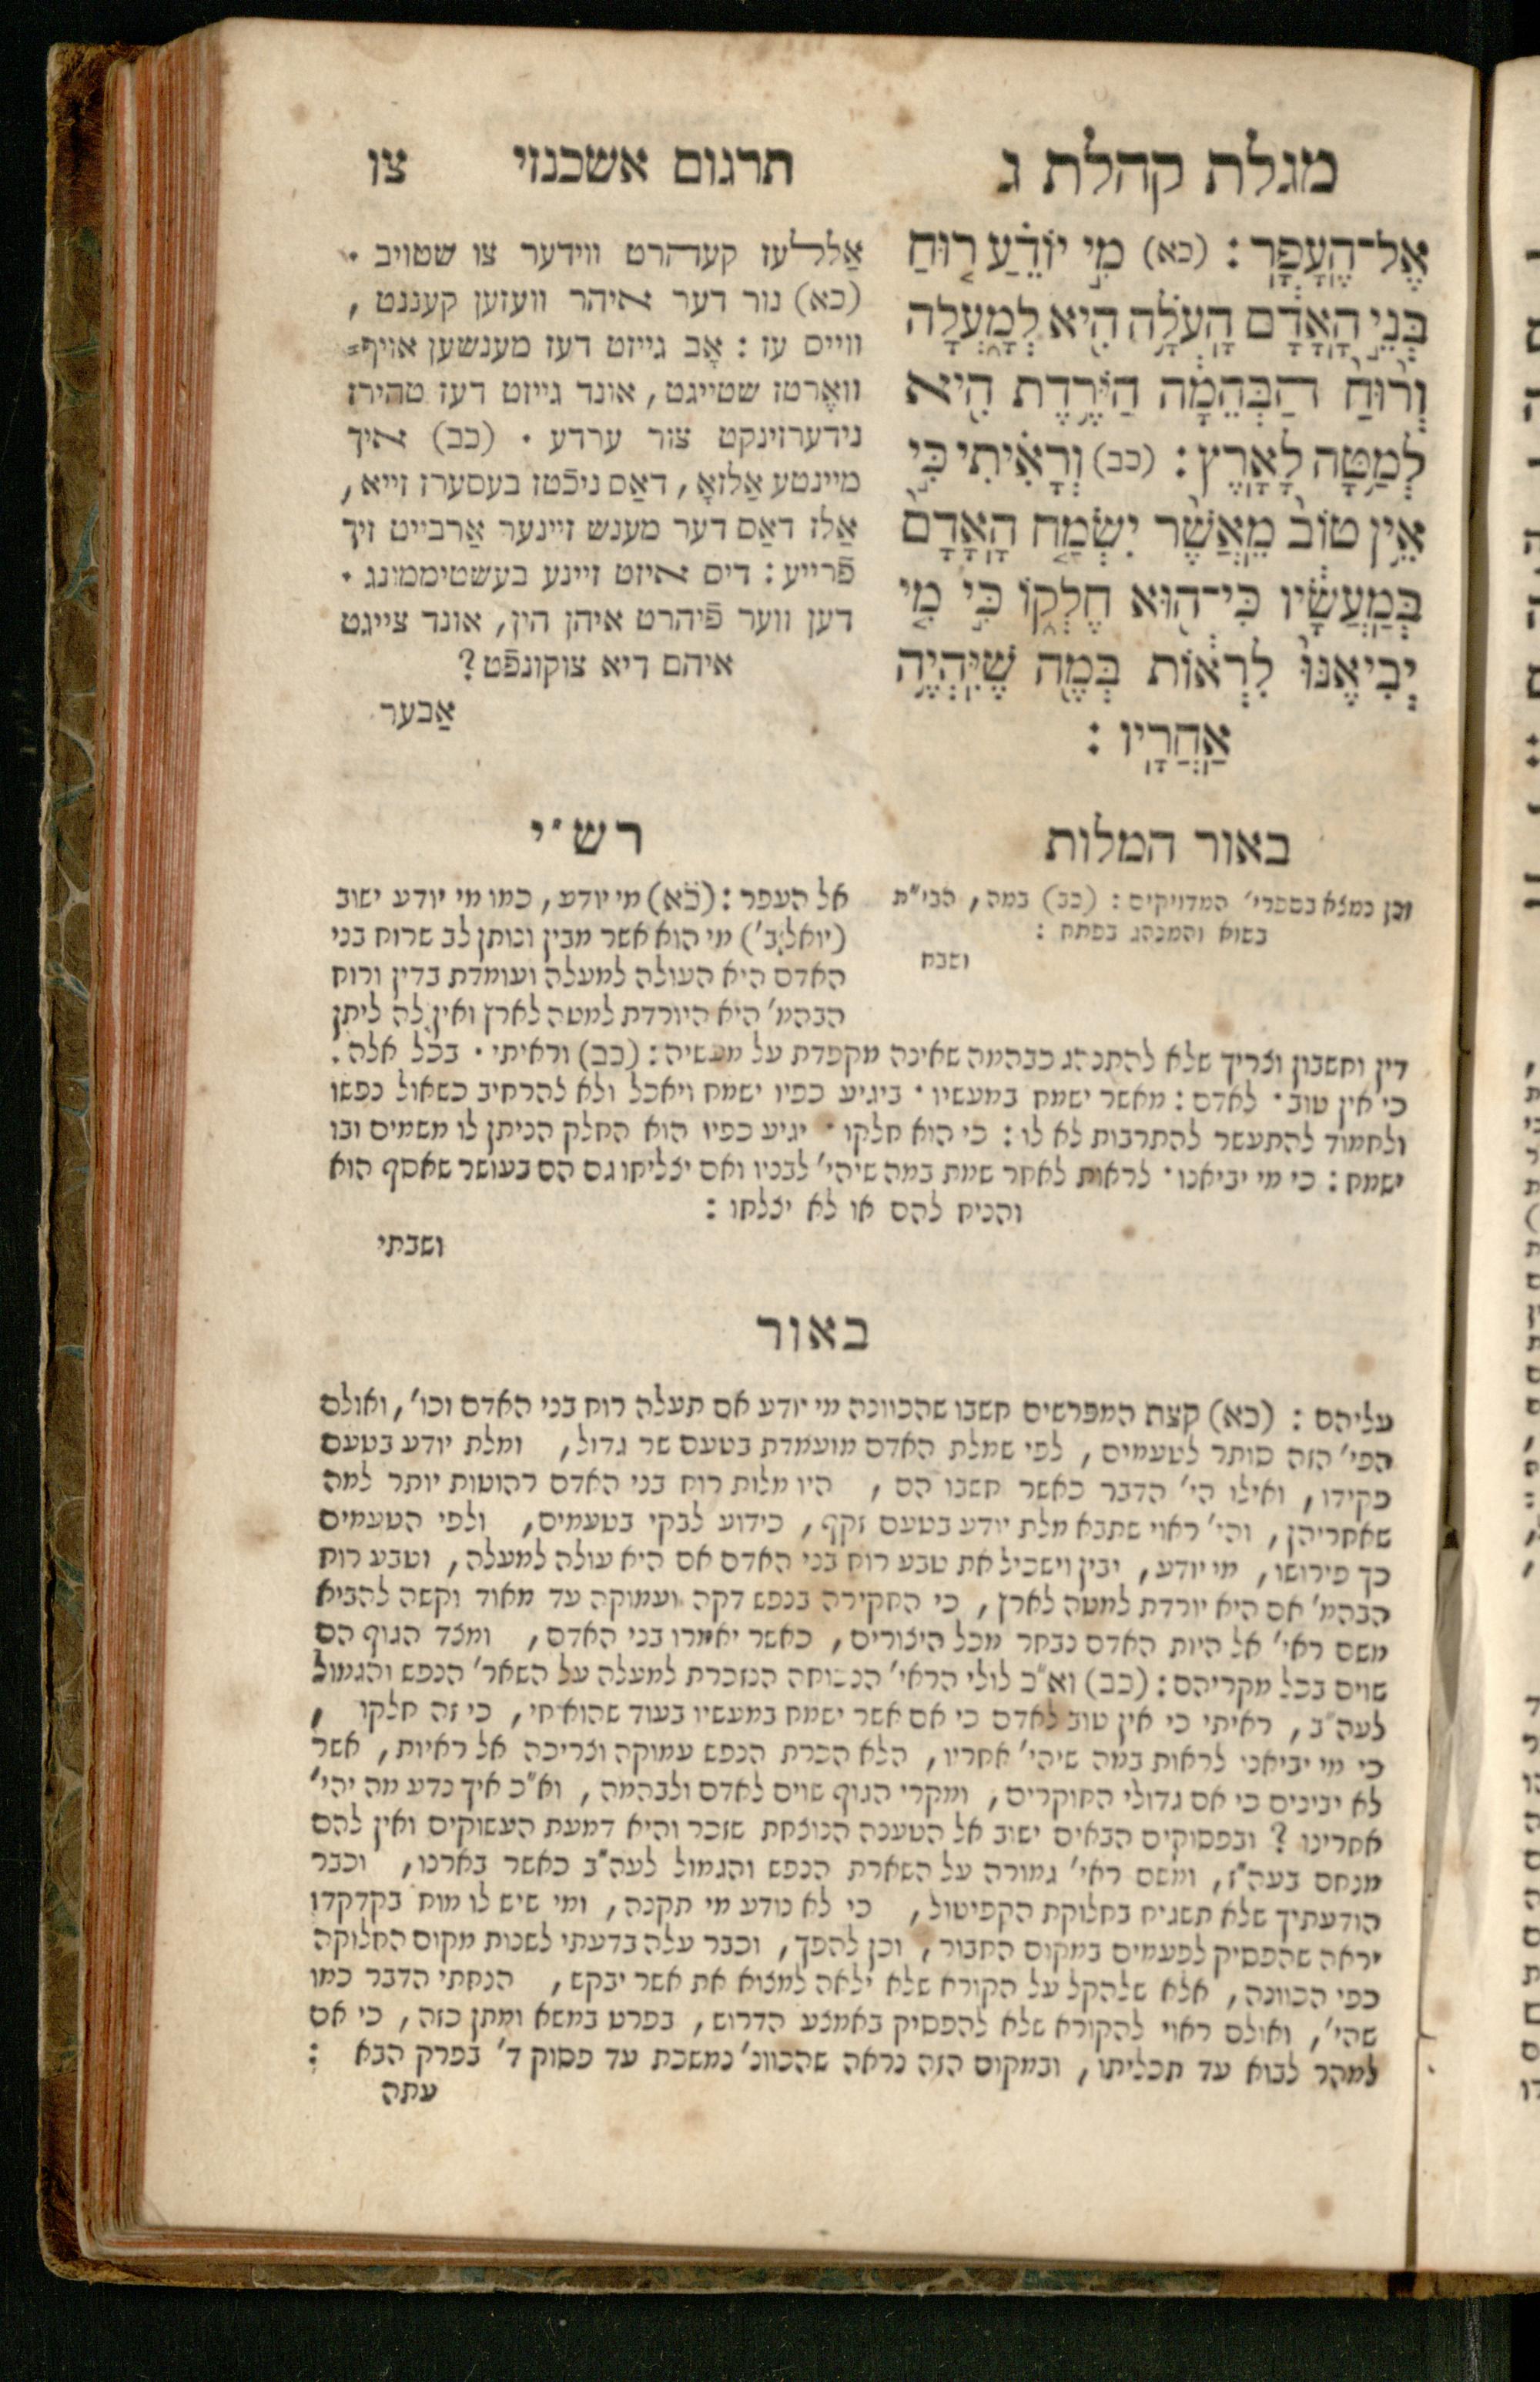 מגלת קהלת ג
תרגום אשכנזי
צו
אֶל־הֶעָפָר׃ (כא) מִי יוֹדֵעַ רוּחַ
בְּנֵי הָאָדָם הָעֹלָה הִיא לְמָעְלָה
וְרוּחַ הַבְּהֵמָה הַיֹּרֶדֶת הִיא
לְמַטָּה לָאָרֶץ׃ (כב) וְרָאִיתִי כִּי
אֵין טוֹב מֵאֲשֶׁר יִשְׂמַח הָאָדָם
בְּמַעֲשָׂיו כִּי־הוּא חֶלְקוֹ כִּי מִי
יְבִיאֶנּוּ לִרְאוֹת בְּמֶה שֶׁיִּהְיֶה
אַחֲרָיו׃
אַללעז קעהרט ווידער צו שטויב ·
(כא) נור דער איהר וועזען קעננט ,
ווייס עז : אָב גייזט דעז מענשען אויף⸗
וואֶרטז שטייגט, אונד גייזט דעז טהירז
נידערזינקט צור ערדע · (כב) איך
מיינטע אַלזאָ, דאַס ניכֿטז בעסערז זייא,
אַלז דאַס דער מענש זיינער אַרבייט זיך
פֿרייע : דיס איזט זיינע בעשטיממונג ·
דען ווער פֿיהרט איהן הין, אונד צייגט
איהם דיא צוקונפֿט?
אַבער
באור המלות
וכן נמצא בספרי' המדויקים : (כב) במה, הבי"ת
בשוא והמנהג בפתח :
ושבח
רש"י
אל העפר : (כא) מי יודע, כמו מי יודע ישוב
(יואל ב') מי הוא אשר מבין ונותן לב שרוח בני
האדם היא העולה למעלה ועומדת בדין ורוח
הבהמ' היא היורדת למטה לארץ ואין לה ליתן
דין וחשבון וצריך שלא להתנהג כבהמה שאינה מקפדת על מעשיה : (כב) וראיתי · בכל אלה.
כי אין טוב · לאדם : מאשר ישמח במעשיו · ביגיע כפיו ישמח ויאכל ולא להרחיב כשאול נפשו
ולחמוד להתעשר להתרבות לא לו : כי הוא חלקו · יגיע כפיו הוא החלק הניתן לו משמים ובו
ישמח : כי מי יביאנו · לראות לאחר שמת במה שיהי' לבניו ואם יצליחו גם הם בעושר שאסף הוא
והניח להם או לא יצלחו :
ושבתי
באור
עליהם : (כא) קצת המפרשים חשבו שהכוונה מי יודע אם תעלה רוח בני האדם וכו', ואולם
הפי' הזה סותר לטעמים, לפי שמלת האדם מועמדת בטעם שר גדול, ומלת יודע בטעם
פקידו, ואילו הי' הדבר כאשר חשבו הם, היו מלות רוח בני האדם רהוטות יותר למה
שאחריהן, והי' ראוי שתבא מלת יודע בטעם זקף, כידוע לבקי בטעמים, ולפי הטעמים
כך פירושו, מי יודע, יבין וישכיל את טבע רוח בני האדם אם היא עולה למעלה, וטבע רוח
הבהמ' אם היא יורדת למטה לארץ, כי החקירה בנפש דקה ועמוקה עד מאוד וקשה להביא
משם ראי' אל היות האדם נבחר מכל היצורים, כאשר יאמרו בני האדם, ומצד הגוף הם
שוים בכל מקריהם : (כב) וא"כ לולי הראי' הנצוחה הנזכרת למעלה על השאר' הנפש והגמול
לעה"ב, ראיתי כי אין טוב לאדם כי אם אשר ישמח במעשיו בעוד שהוא חי, כי זה חלקו,
כי מי יביאני לראות במה שיהי' אחריו, הלא הכרת הנפש עמוקה וצריכה אל ראיות, אשר
לא יבינים כי אם גדולי החוקרים, ומקרי הגוף שוים לאדם ולבהמה, וא"כ איך נדע מה יהי'
אחרינו ? ובפסוקים הבאים ישוב אל הטענה הנוצחת שזכר והיא דמעת העשוקים ואין להם
מנחם בעה"ז, ומשם ראי' גמורה על השארת הנפש והגמול לעה"ב כאשר בארנו, וכבר
הודעתיך שלא תשגיח בחלוקת הקפיטול, כי לא נודע מי תקנה, ומי שיש לו מוח בקדקדו
יראה שהפסיק לפעמים במקום החבור, וכן להפך, וכבר עלה בדעתי לשנות מקום החלוקה
כפי הכוונה, אלא שלהקל על הקורא שלא ילאה למצוא את אשר יבקש, הנחתי הדבר כמו
שהי', ואולם ראוי להקורא שלא להפסיק באמצע הדרוש, בפרט במשא ומתן כזה, כי אם
למהר לבוא עד תכליתו, ובמקום הזה נראה שהכוונ' נמשכת עד פסוק ד' בפרק הבא :
עתה